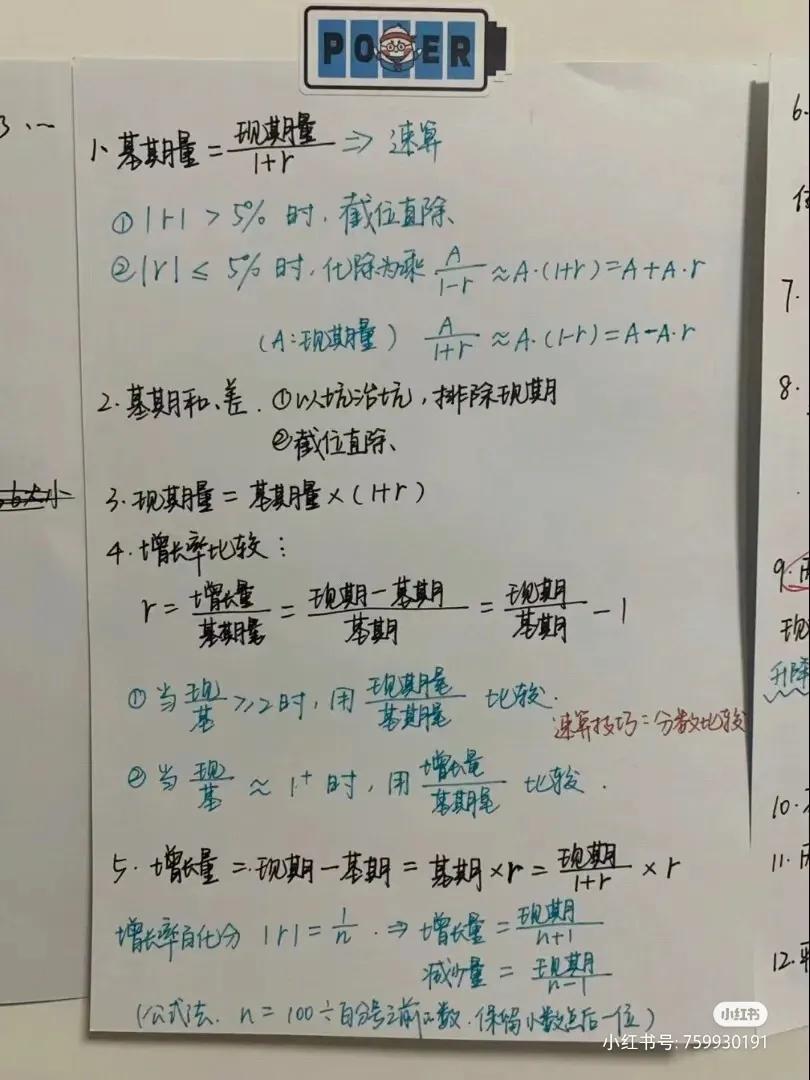 POWER
1、基期量 = 现期量/(1+r) ⇒ 速算
① |r| > 5% 时，截位直除、
② |r| ≤ 5% 时，化除为乘 A/(1-r) ≈ A·(1+r) = A + A·r
(A:现期量) A/(1+r) ≈ A·(1-r) = A - A·r
2. 基期和、差. ①以坑治坑，排除现期
②截位直除、
3. 现期量 = 基期量 × (1+r)
4. 增长率比较：
r = 增长量/基期量 = (现期-基期)/基期 = 现期/基期 - 1
① 当 现/基 ≥ 2 时，用 现期量/基期量 比较.
速算技巧：分数比较
② 当 现/基 ≈ 1⁺ 时，用 增长量/基期量 比较.
5. 增长量 = 现期-基期 = 基期×r = 现期/(1+r) × r
增长率百化分 |r| = 1/n. ⇒ 增长量 = 现期/(n+1)
减少量 = 现期/(n-1)
(公式法、n = 100÷百分号前的数.保留小数点后一位)
3、一
大小
6.
7.
8.
9.
现
升降
10.
11.
12.
小红书
小红书号: 759930191